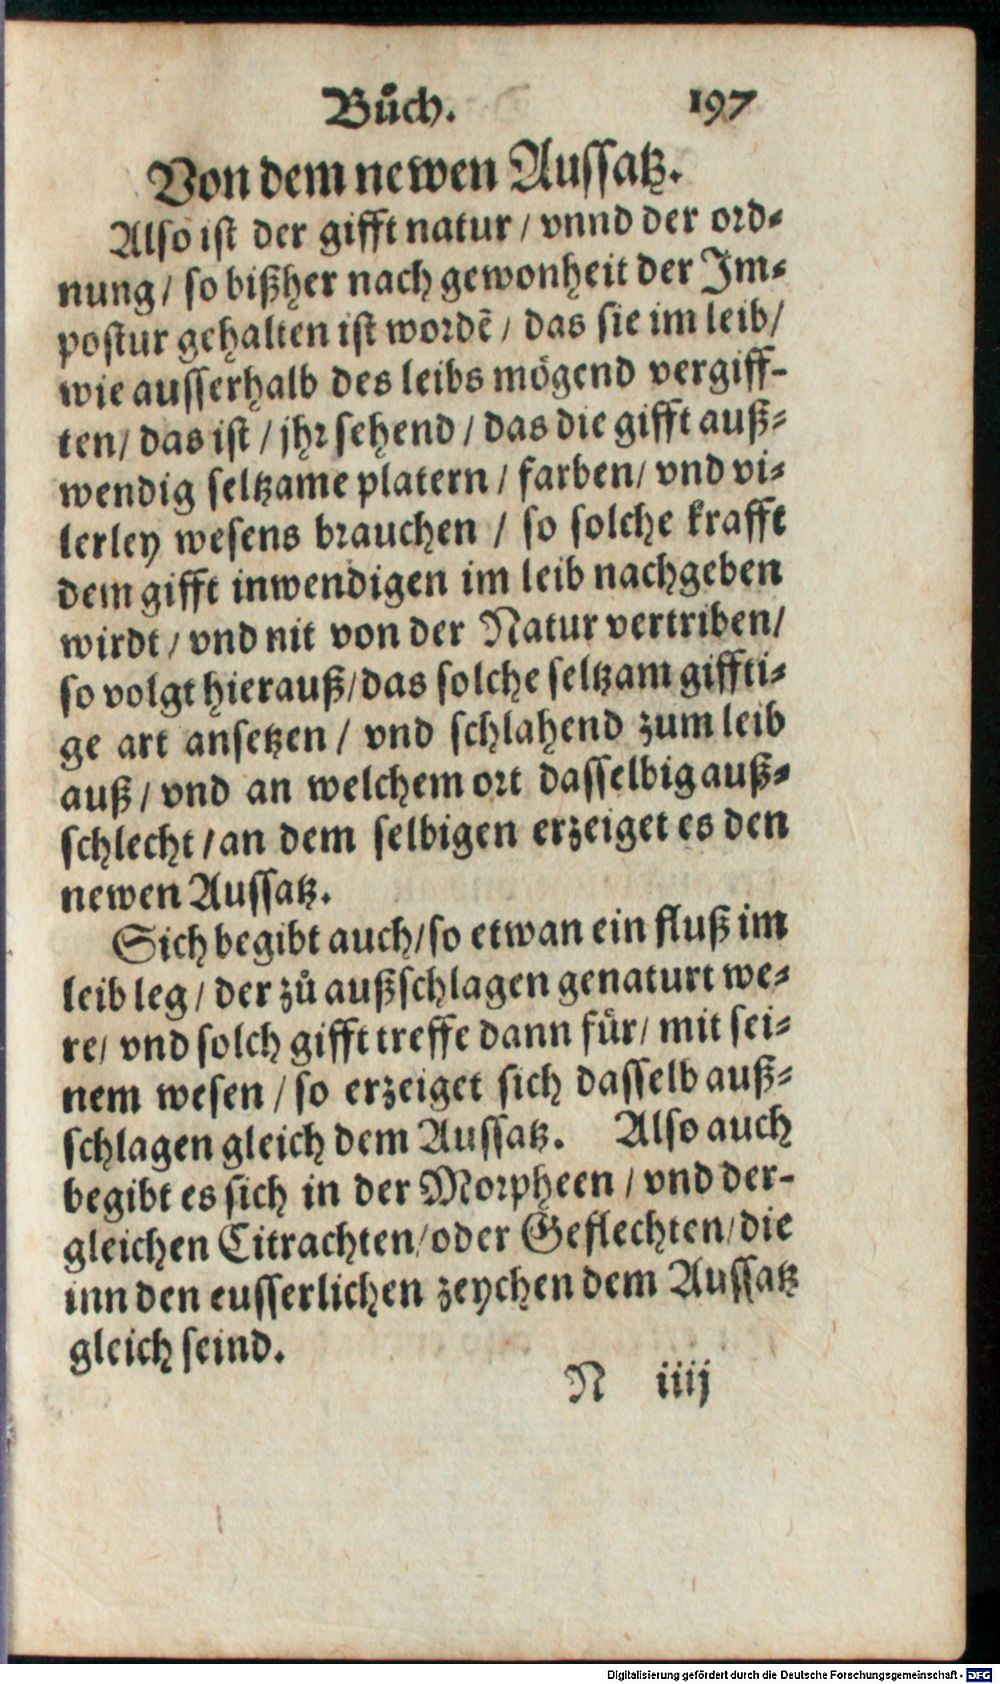 Bůch. 197
Von dem newen Aussatz.
Also ist der gifft natur / vnnd der ord-
nung / so bißher nach gewonheit der Im-
postur gehalten ist wordē / das sie im leib /
wie ausserhalb des leibs mögend vergiff-
ten / das ist / jhr sehend / das die gifft auß-
wendig seltzame platern / farben / vnd vi-
lerley wesens brauchen / so solche krafft
dem gifft inwendigen im leib nachgeben
wirdt / vnd nit von der Natur vertriben /
so volgt hierauß / das solche seltzam giffti-
ge art ansetzen / vnd schlahend zum leib
auß / vnd an welchem ort dasselbig auß-
schlecht / an dem selbigen erzeiget es den
newen Aussatz.
Sich begibt auch / so etwan ein fluß im
leib leg / der zů außschlagen genaturt we-
re / vnd solch gifft treffe dann für / mit sei-
nem wesen / so erzeiget sich dasselb auß-
schlagen gleich dem Aussatz. Also auch
begibt es sich in der Morpheen / vnd der-
gleichen Citrachten / oder Geflechten / die
inn den eusserlichen zeychen dem Aussatz
gleich seind.
N iiij
Digitalisierung gefördert durch die Deutsche Forschungsgemeinschaft - DFG